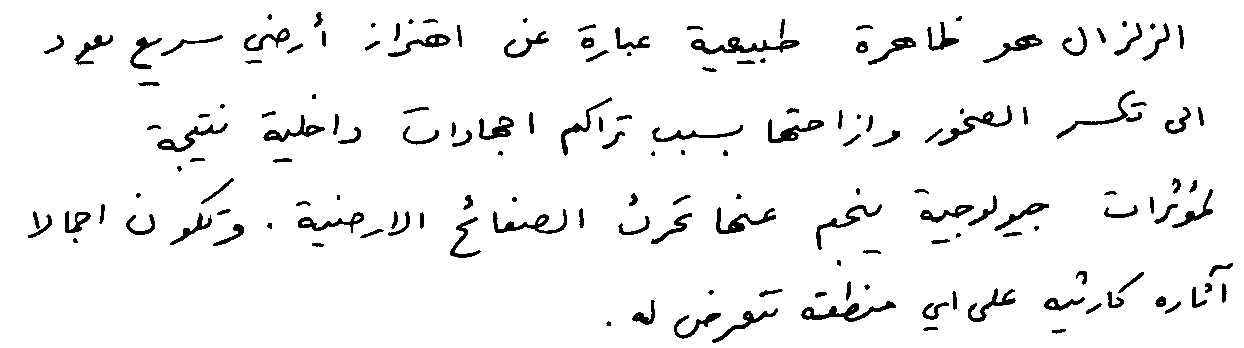 الزلزال هو ظاهرة طبيعية عبارة عن اهتزاز أرضي سريع يعود
الى تكسر الصخور وازاحتها بسبب تراكم اجهادات داخلية نتيجة
لمؤثرات جيولوجية ينجم عنها تحرك الصفائح الارضية . وتكون اجمالا
آثاره كارثيه على اي منطقه تتعرض له .